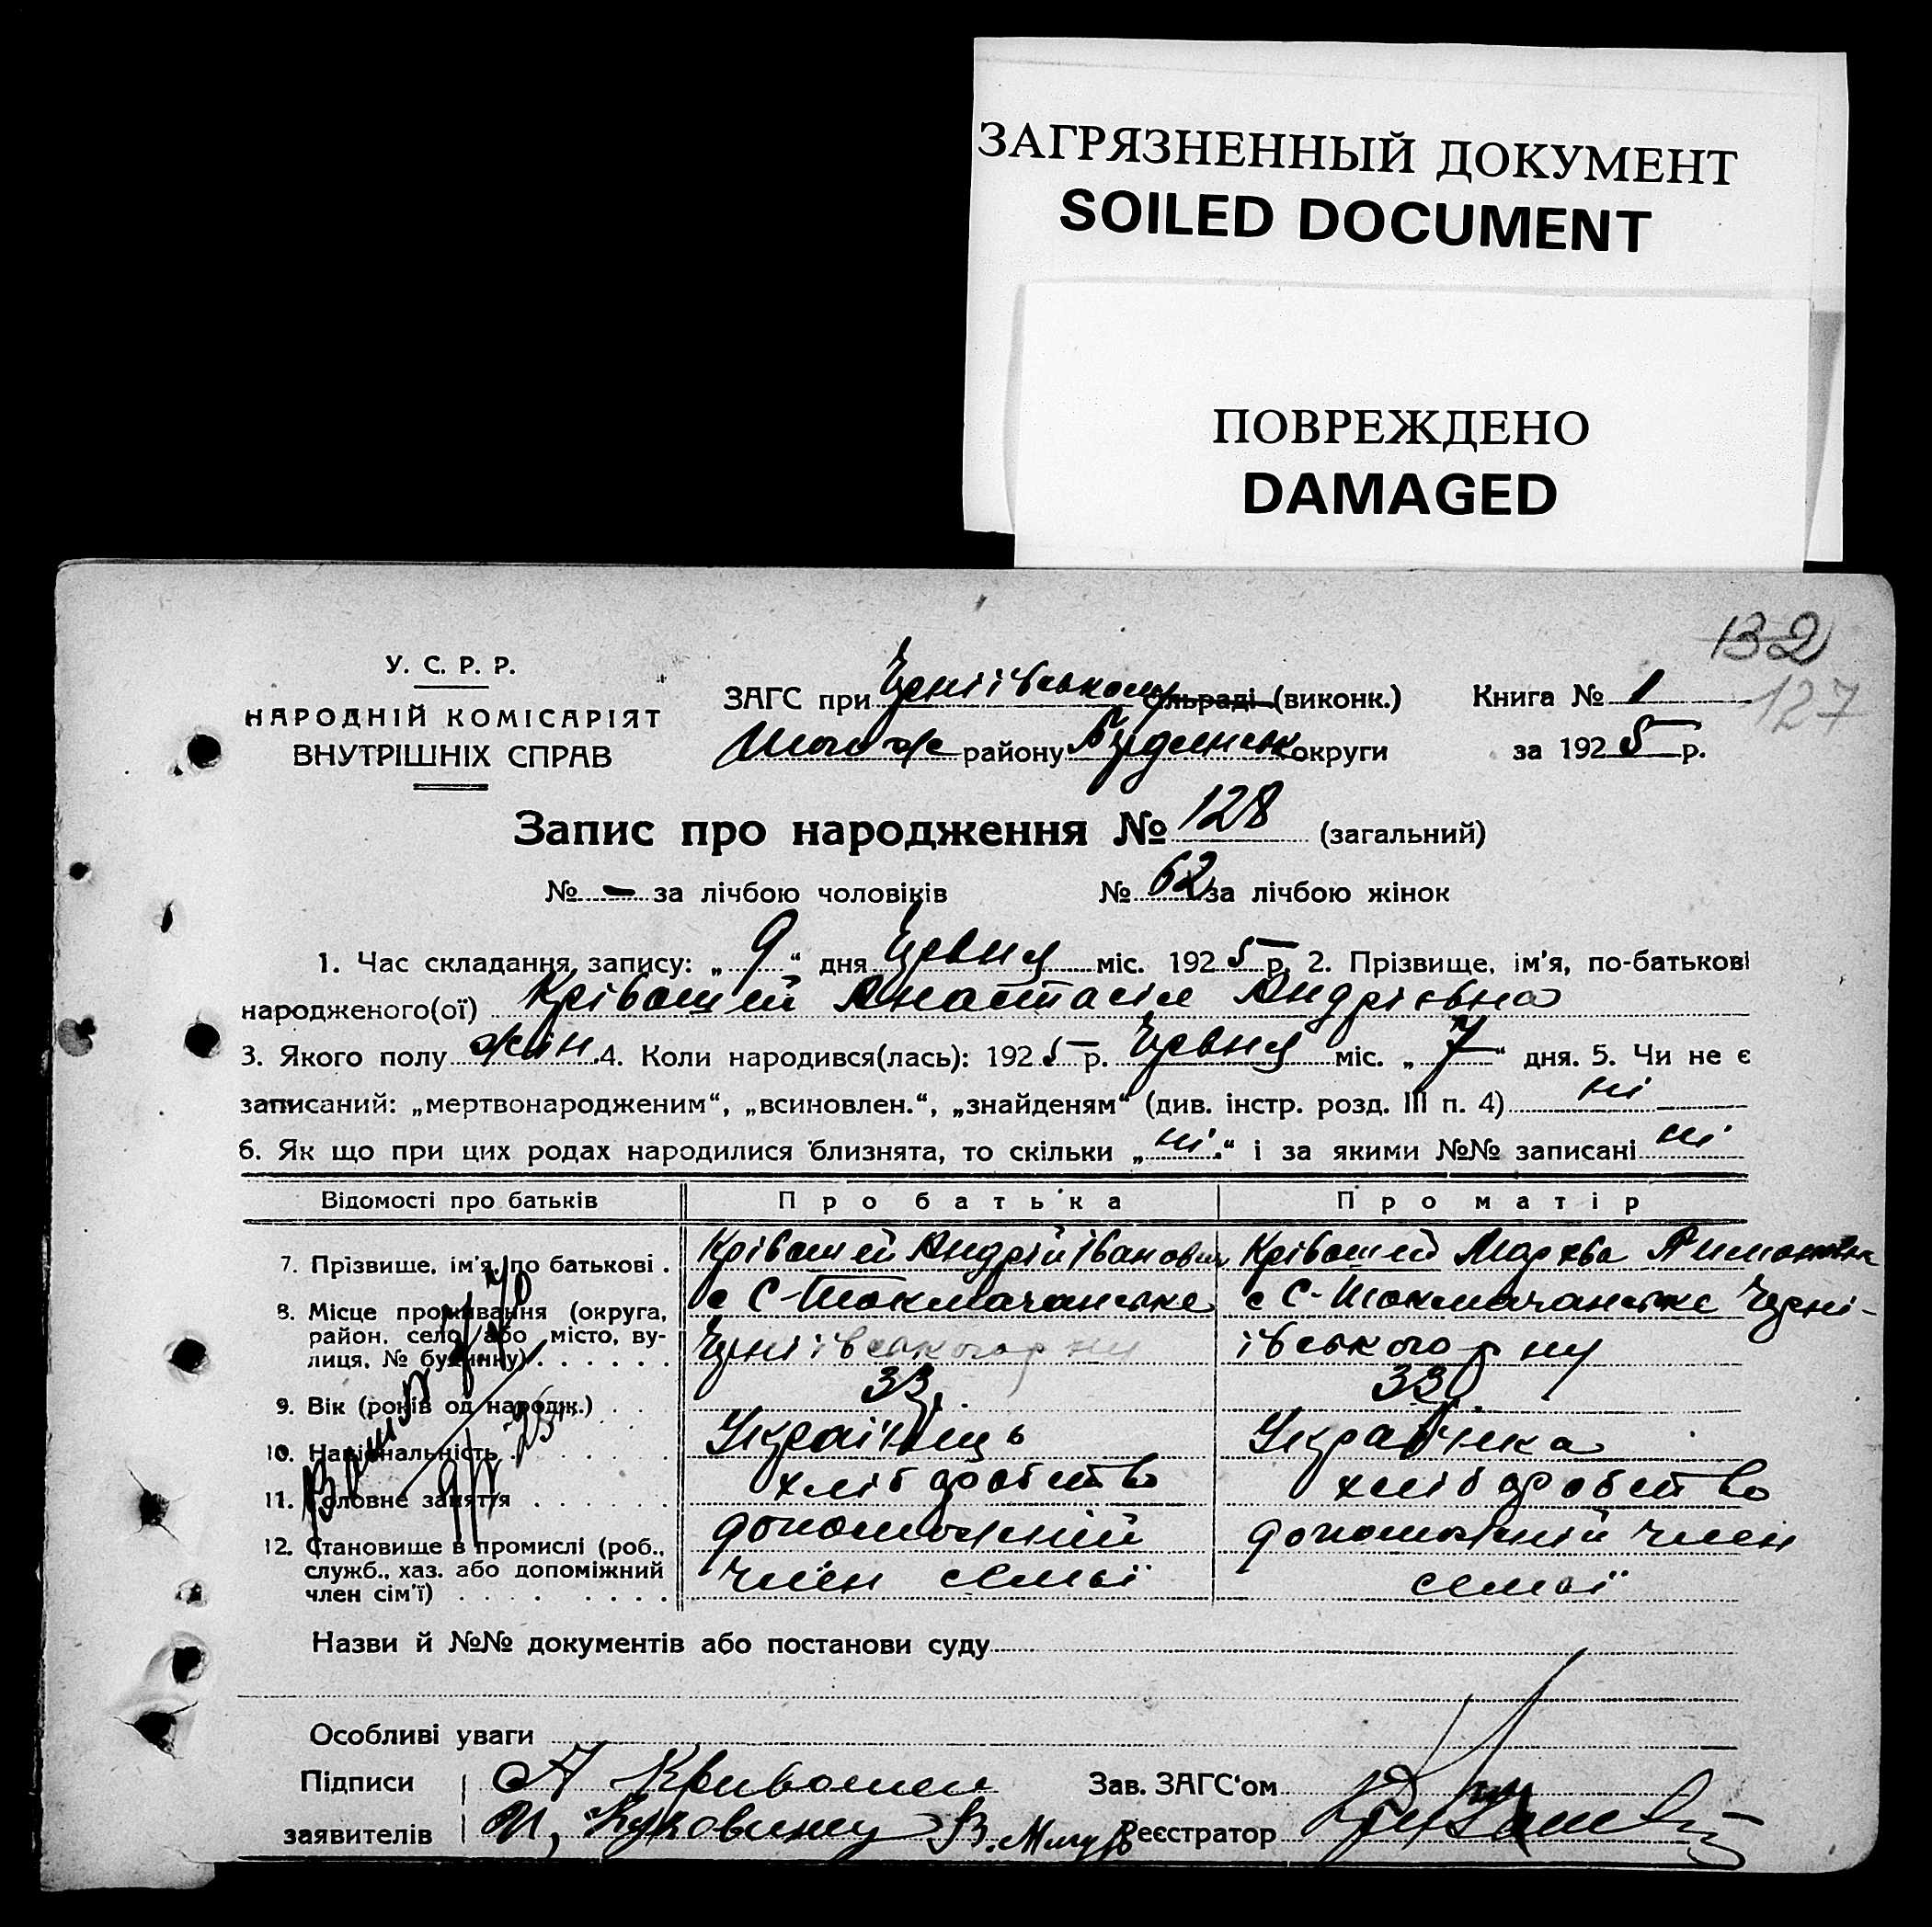 ЗАГРЯЗНЕННЫЙ ДОКУМЕНТ
SOILED DOCUMENT
ПОВРЕЖДЕНО
DAMAGED
132
127
У. С. Р. Р.
НАРОДНІЙ КОМІСАРІЯТ
ВНУТРІШНІХ СПРАВ
ЗАГС при сільраді (виконк.) Книга № 1
району округи за 1925 р.
Запис про народження № 128 (загальний)
№ - за лічбою чоловіків № 62 за лічбою жінок
1. Час складання запису: „9“ дня Червня міс. 1925 р. 2. Прізвище, ім'я, по-батькові
народженого(ої) Крівошей Анастасія Андріівна
3. Якого полу жін. 4. Коли народився(лась): 1925 р. Червня міс. „7“ дня. 5. Чи не є
записаний: „мертвонародженим“, „всиновлен.“, „знайденям“ (див. інстр. розд. III п. 4) ні
6. Як що при цих родах народилися близнята, то скільки „ні“ і за якими №№ записані ні
Відомості про батьків Про батька Про матір
7. Прізвище, ім'я, по батькові . Крівошей Андрій Іванович Крівошей Мархва
8. Місце проживання (округа, район, село або місто, вулиця, № будинку) . . . . . . с С-Токмачанське с С-Токмачанське
9. Вік (років од народж.) . . 33 33
10. Національність . . . . . . Українець Українка
11. Головне заняття . . . . . . хліборобство хліборобство
12. Становище в промислі (роб., служб., хаз. або допоміжний член сім'ї) . . . . . . . . допоможній член семьї допоможній член семьї
Назви й №№ документів або постанови суду
Особливі уваги
Підписи А Кривошеи Зав. ЗАГС'ом
заявителів Реєстратор